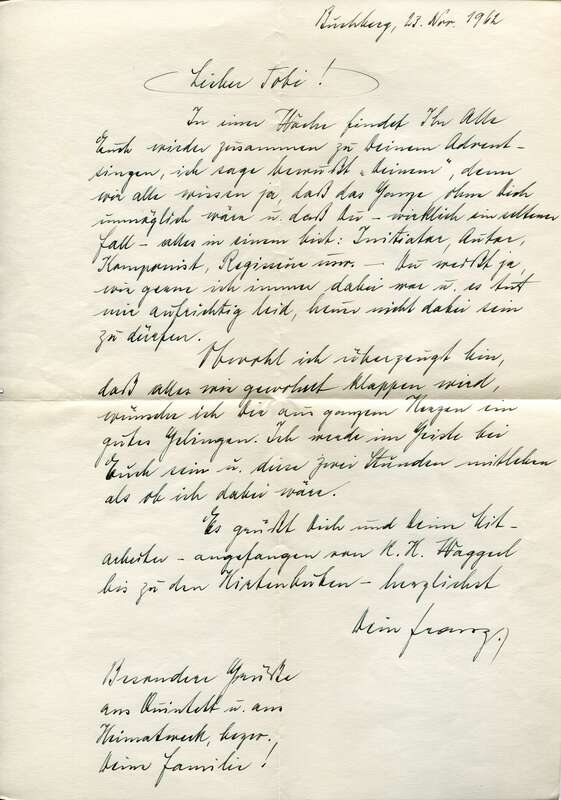 Buchberg, 23. Nov. 1962
Lieber Tobi!
In einer Woche findet Ihr Alle
Euch wieder zusammen zu Deinem Advent-
singen, ich sage bewußt "Deinem", denn
wir alle wissen ja, daß das Ganze ohne Dich
unmöglich wäre u. daß Du – wirklich ein seltener
Fall – alles in einem bist: Initiator, Autor,
Komponist, Regisseur usw. – Du weißt ja,
wie gerne ich immer dabei war u. es tut
mir aufrichtig leid, heuer nicht dabei sein
zu dürfen.
Obwohl ich überzeugt bin,
daß alles wie gewohnt klappen wird,
wünsche ich Dir aus ganzem Herzen ein
gutes Gelingen. Ich werde im Geiste bei
Euch sein u. diese zwei Stunden mitleben
als ob ich dabei wäre.
Es grüßt Dich und Deine Mit-
arbeiter – angefangen von K. H. Waggerl
bis zu den Hirtenbuben – herzlichst
Dein Franz.
Besondere Grüße
ans Quintett u. ans
Heimatwerk, bezw.
Deine Familie!